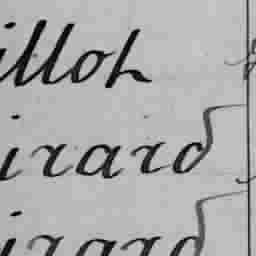 illot
irard
irard